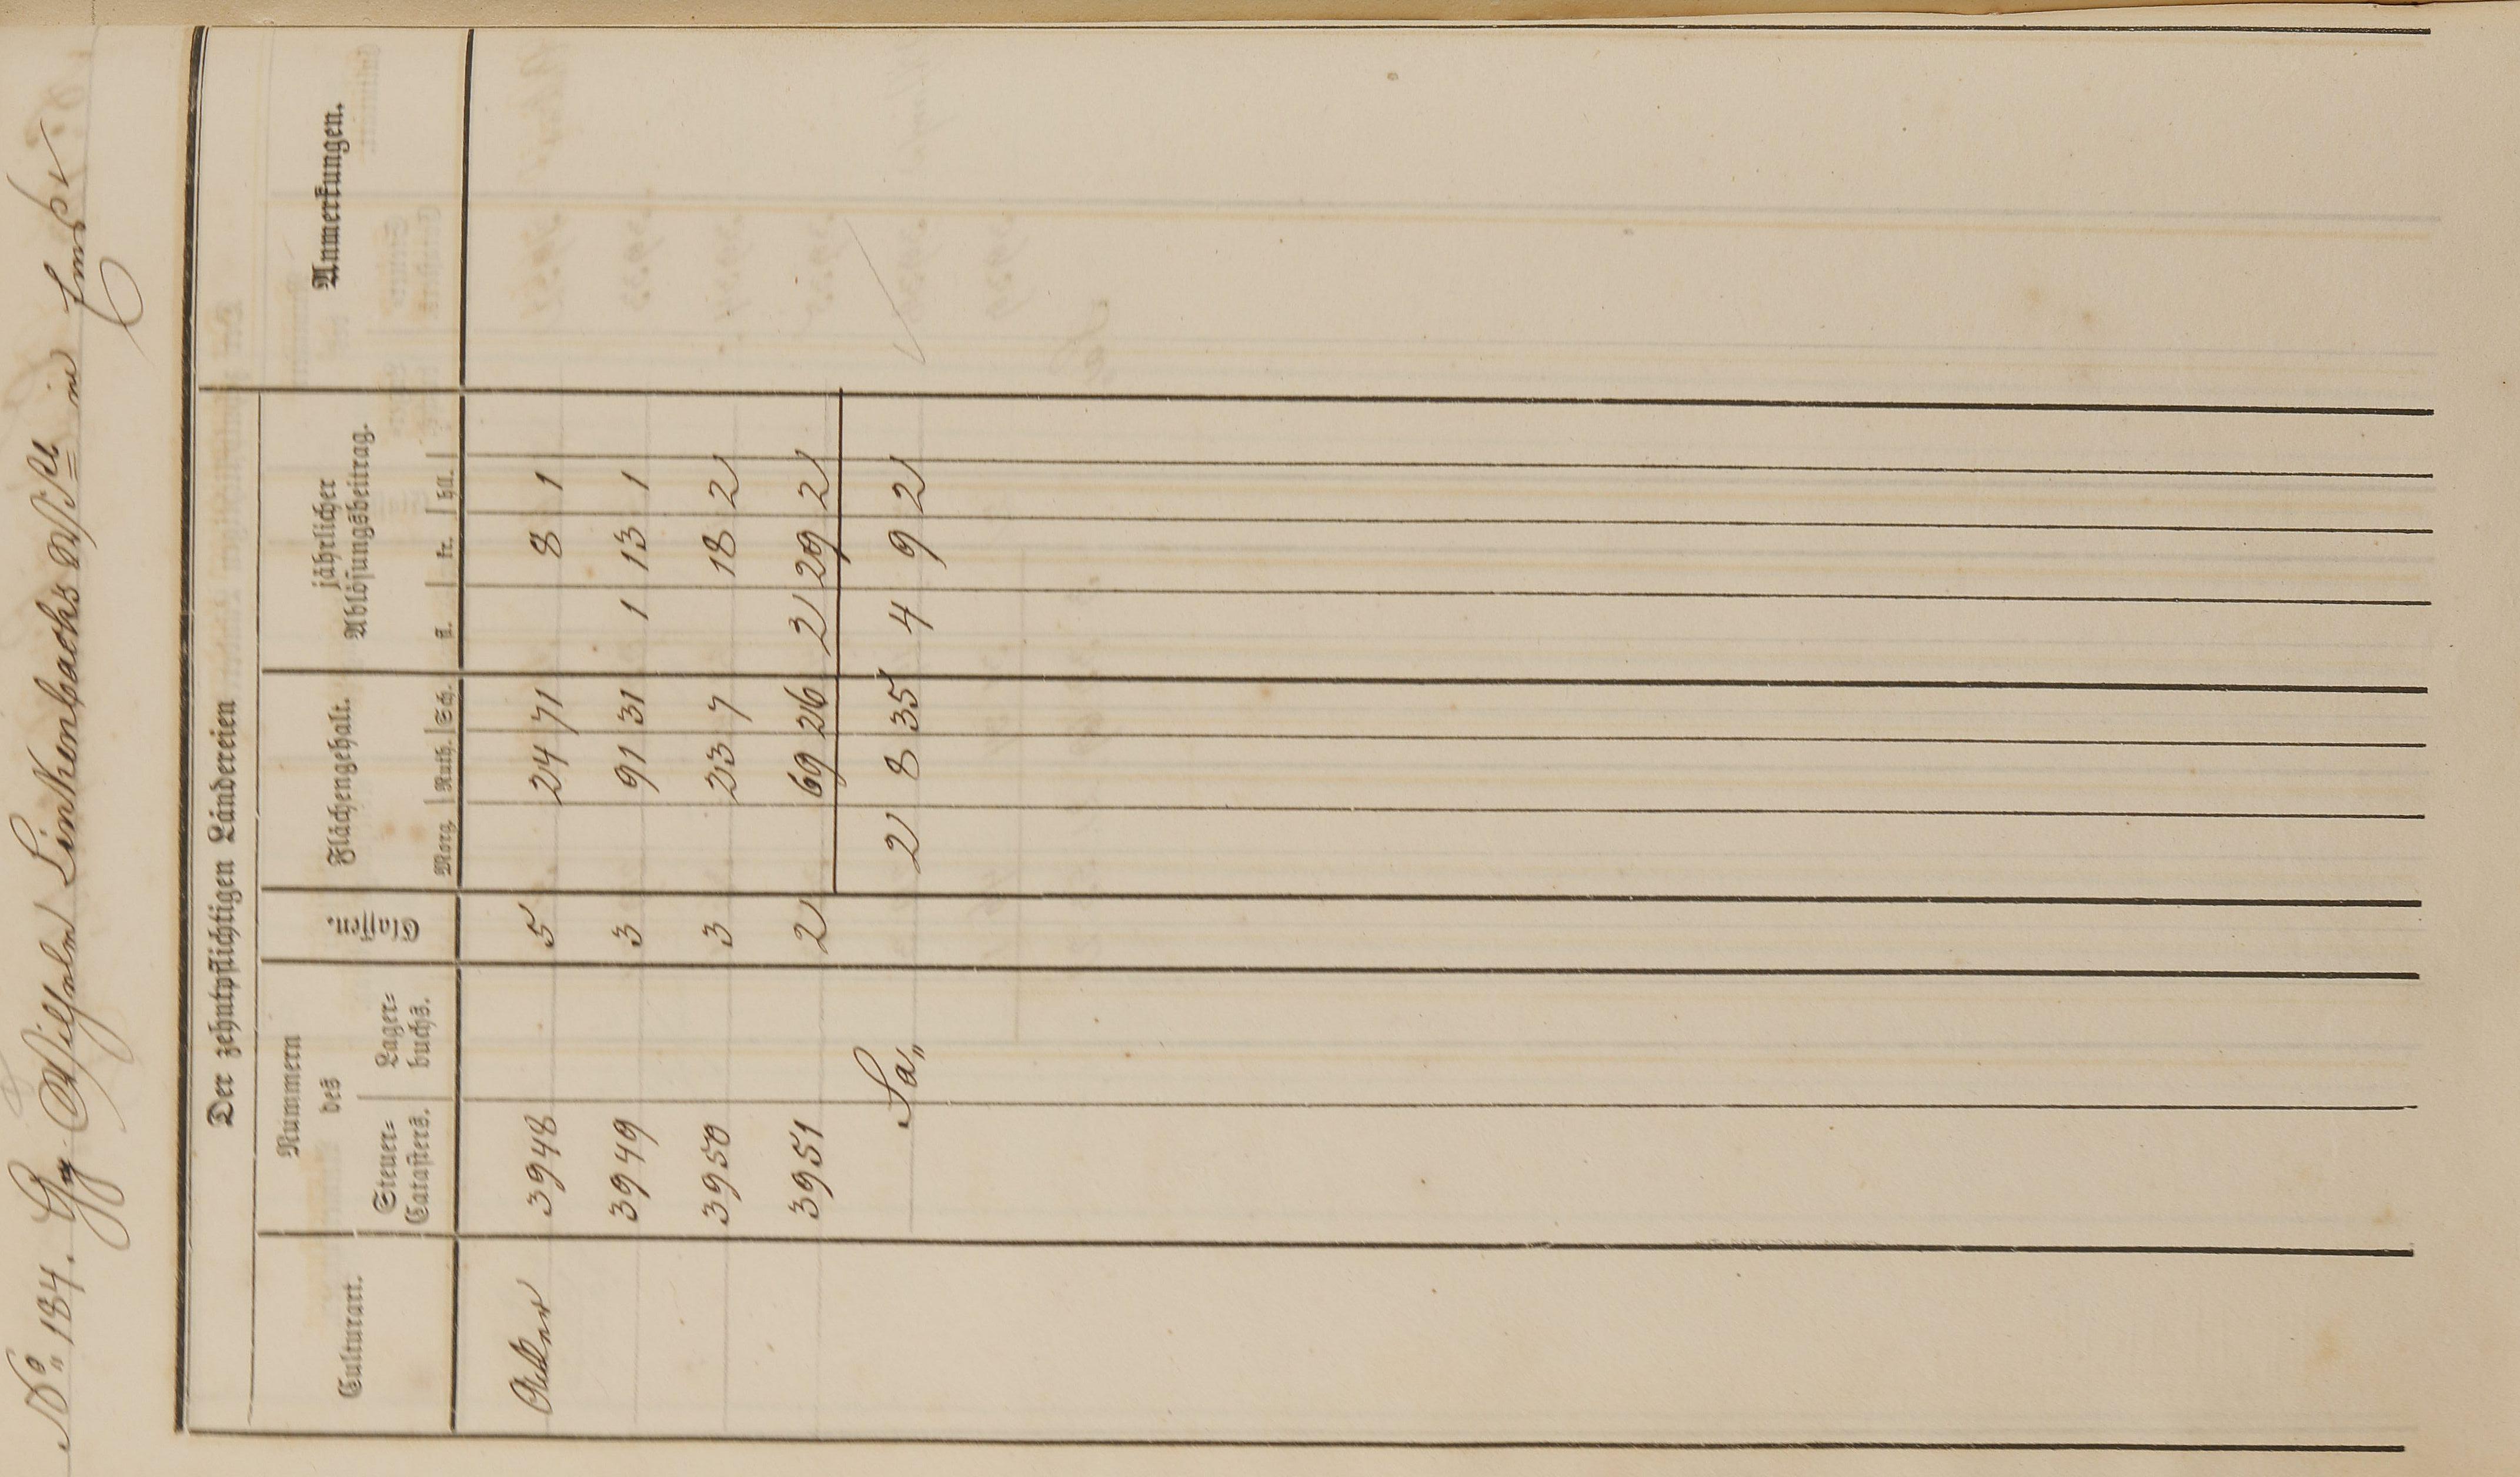 No. 184. Gg. Wilhelm Linkenbachs Wse. in Ems
Der zehntpflichtigen Ländereien
Culturart. Nummern des Steuer-Catasters. Lager-buchs. Classen. Flächengehalt. Morg. Ruth. Sch. jährlicher Ablösungsbeitrag. fl. kr. hll. Anmerkungen.
Acker 3948 5 24 71 8 1
3949 3 91 31 1 13 1
3950 3 23 7 18 2
3951 2 69 26 2 29 2
Sa. 2 8 35 4 9 2